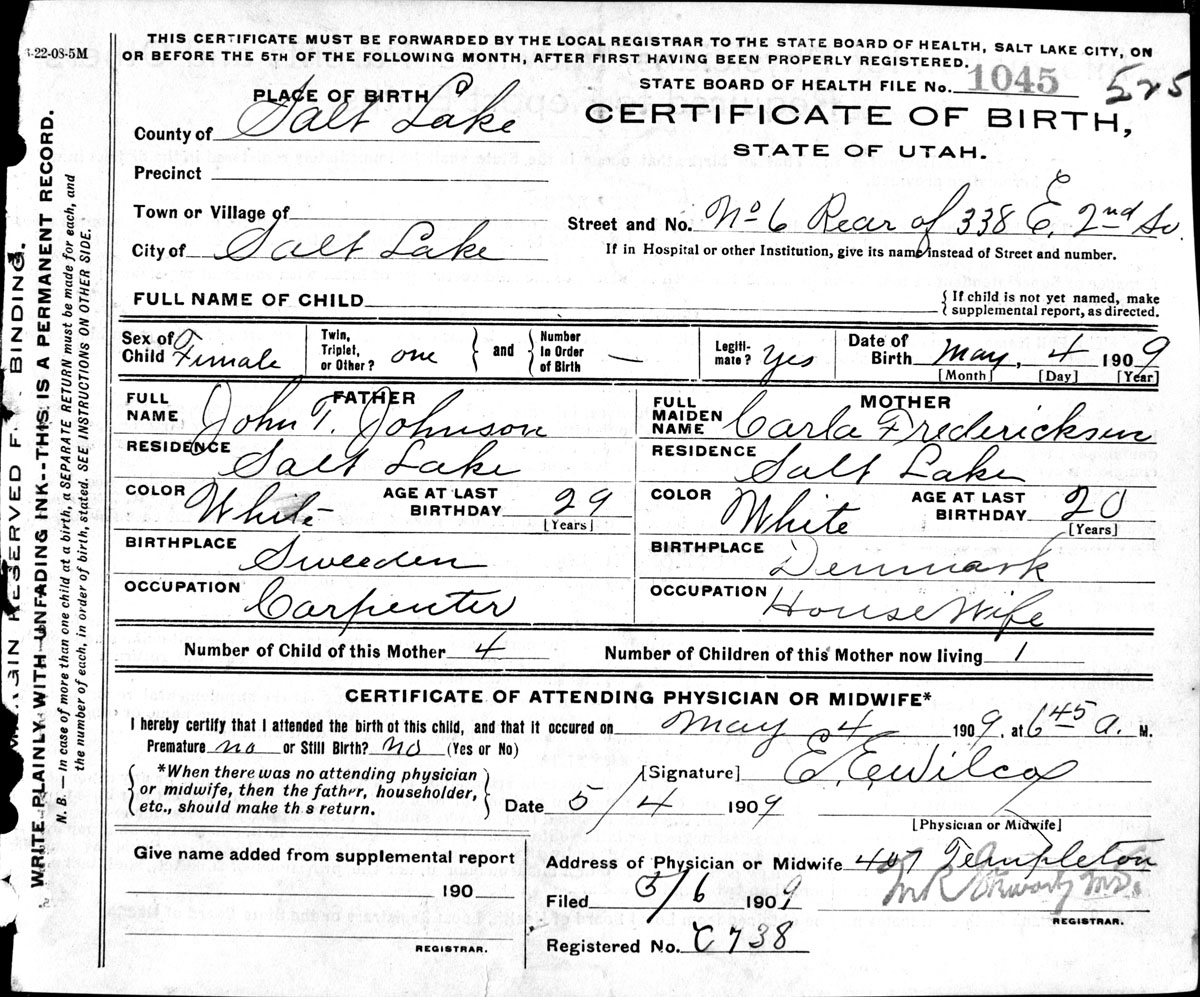 3-22-08-5M
THIS CERTIFICATE MUST BE FORWARDED BY THE LOCAL REGISTRAR TO THE STATE BOARD OF HEALTH, SALT LAKE CITY, ON
OR BEFORE THE 5TH OF THE FOLLOWING MONTH, AFTER FIRST HAVING BEEN PROPERLY REGISTERED.
STATE BOARD OF HEALTH FILE No. 1045 525
PLACE OF BIRTH
County of Salt Lake
CERTIFICATE OF BIRTH,
STATE OF UTAH.
Precinct
Town or Village of
Street and No. No 6 Rear of 338 E. 2nd So.
E
City of Salt Lake
If in Hospital or other Institution, give its name instead of Street and number.
FULL NAME OF CHILD
{ If child is not yet named, make
supplemental report, as directed.
Sex of Child Female
Twin, Triplet, or Other? one } and { Number In Order of Birth —
Legiti-mate? yes
Date of Birth May, 4 1909
[Month] [Day] [Year]
FATHER
FULL NAME John T. Johnson
RESIDENCE Salt Lake
COLOR White AGE AT LAST BIRTHDAY 29
[Years]
BIRTHPLACE Sweeden
OCCUPATION Carpenter
MOTHER
FULL MAIDEN NAME Carla Fredericksen
RESIDENCE Salt Lake
COLOR White AGE AT LAST BIRTHDAY 20
[Years]
BIRTHPLACE Denmark
OCCUPATION House Wife
Number of Child of this Mother 4 Number of Children of this Mother now living 1
CERTIFICATE OF ATTENDING PHYSICIAN OR MIDWIFE*
I hereby certify that I attended the birth of this child, and that it occured on May 4 1909, at 6 45 a. M.
Premature no or Still Birth? no (Yes or No)
{ *When there was no attending physician
or midwife, then the father, householder,
etc., should make th s return. }
[Signature] E. E. Wilcox
Date 5/4 1909
[Physician or Midwife]
Give name added from supplemental report
190
REGISTRAR.
Address of Physician or Midwife 407 Templeton
Filed 5/6 1909
REGISTRAR.
Registered No. C738
MARGIN RESERVED F BINDING.
WRITE PLAINLY WITH UNFADING INK--THIS IS A PERMANENT RECORD.
N. B.— In case of more than one child at a birth, a SEPARATE RETURN must be made for each, and
the number of each, in order of birth, stated. SEE INSTRUCTIONS ON OTHER SIDE.